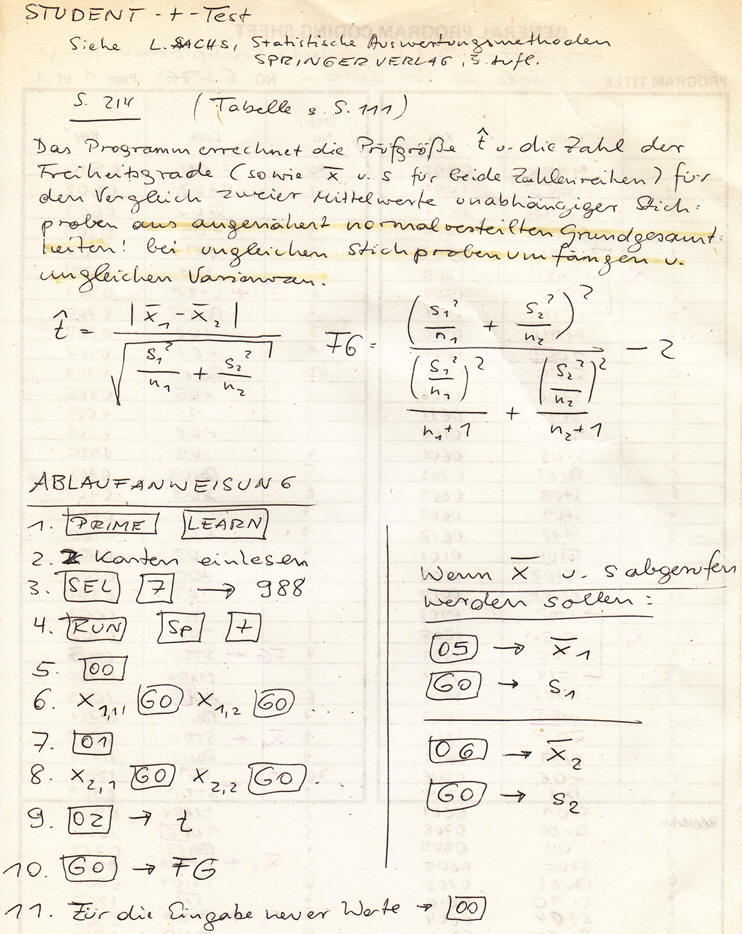 STUDENT - t - Test
Siehe L. SACHS, Statistische Auswertungsmethoden
SPRINGER VERLAG, 3. Aufl.
S. 214 (Tabelle s. S. 111)
Das Programm errechnet die Prüfgröße t̂ u. die Zahl der
Freiheitsgrade (sowie x̄ u. s für beide Zahlenreihen) für
den Vergleich zweier Mittelwerte unabhängiger Stich=
proben aus angenähert normalverteilten Grundgesamt=
heiten! bei ungleichen Stichprobenumfängen u.
ungleichen Varianzen.
t̂ = |x̄₁ - x̄₂| / √(s₁²/n₁ + s₂²/n₂) FG = (s₁²/n₁ + s₂²/n₂)² / ((s₁²/n₁)²/(n₁+1) + (s₂²/n₂)²/(n₂+1)) - 2
ABLAUFANWEISUNG
1. PRIME LEARN
2. 2 Karten einlesen
3. SEL 7 → 988
4. RUN Sp t
5. 00
6. x₁,₁, GO x₁,₂ GO ...
7. 01
8. x₂,₁ GO x₂,₂ GO .
9. 02 → t
10. GO → FG
11. Für die Eingabe neuer Werte → 00
Wenn x̄ u. s abgerufen
werden sollen:
05 → x̄₁
GO → s₁
06 → x̄₂
GO → s₂